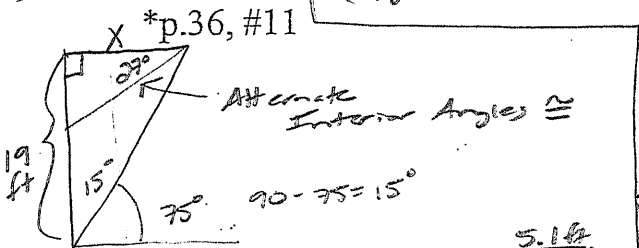 X *p.36, #11
27°
Alternate
Interior Angles ≅
19
ft
15°
75° 90-75=15°
5.1 ft